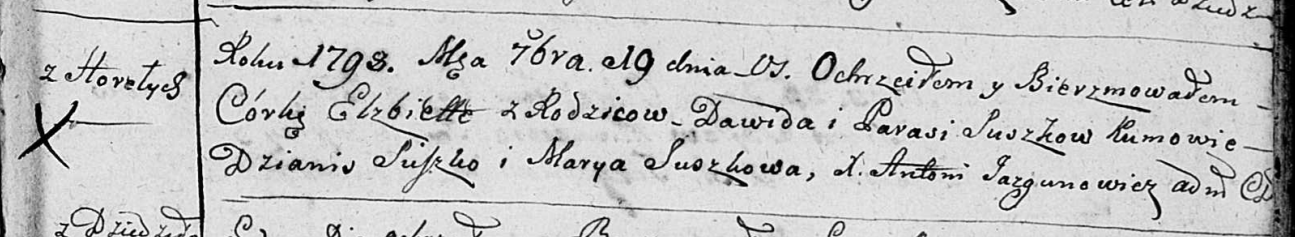 z Horełych
Roku 1798. Mca 7bra. 19 dnia Vs. Ochrzciłem y Bierzmowałem
Córkę Elzbiettę z Rodzicow Dawida i Parasi Suszkow Kumowie
Dzianis Suszko i Marya Suszkowa, X. Antoni Jazgunowicz adm CD